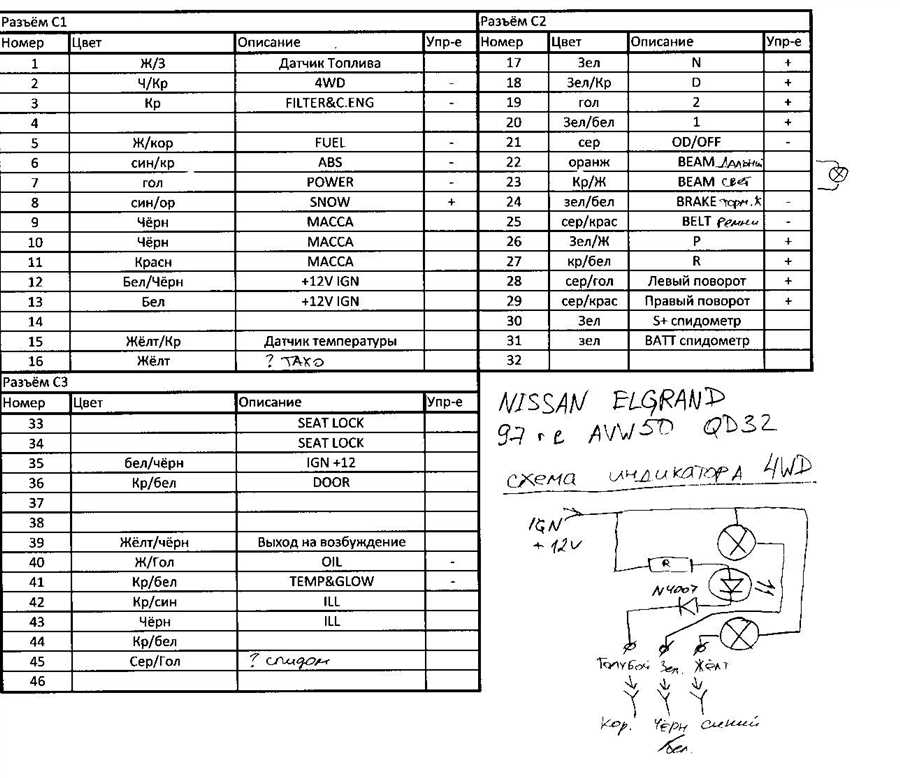 Разъём С1
Номер Цвет Описание Упр-е
1 Ж/З Датчик Топлива
2 Ч/Кр 4WD -
3 Кр FILTER&C.ENG -
4
5 Ж/кор FUEL -
6 син/кр ABS -
7 гол POWER -
8 син/ор SNOW +
9 Чёрн МАССА
10 Чёрн МАССА
11 Красн МАССА
12 Бел/Чёрн +12V IGN
13 Бел +12V IGN
14
15 Жёлт/Кр Датчик температуры
16 Жёлт ? ТАХО
Разъём С2
Номер Цвет Описание Упр-е
17 Зел N +
18 Зел/Кр D +
19 гол 2 +
20 Зел/бел 1 +
21 сер OD/OFF -
22 оранж BEAM Дальний
23 Кр/Ж BEAM свет
24 зел/бел BRAKE торм.ж -
25 сер/крас BELT ремни -
26 Зел/Ж P +
27 кр/бел R +
28 сер/гол Левый поворот +
29 сер/крас Правый поворот +
30 Зел S+ спидометр
31 зел BATT спидометр
32
Разъём С3
Номер Цвет Описание Упр-е
33 SEAT LOCK
34 SEAT LOCK
35 бел/чёрн IGN +12
36 Кр/бел DOOR
37
38
39 Жёлт/чёрн Выход на возбуждение
40 Ж/Гол OIL -
41 Кр/бел TEMP&GLOW -
42 Кр/син ILL
43 Чёрн ILL
44 Кр/бел
45 Сер/Гол ? спидом
46
NISSAN ELGRAND
97 г в AVW50 QD32
схема индикатора 4WD
IGN
+12V
R
N4007
Голубой Зел. Жёлт
Кор. Чёрн синий
бел.